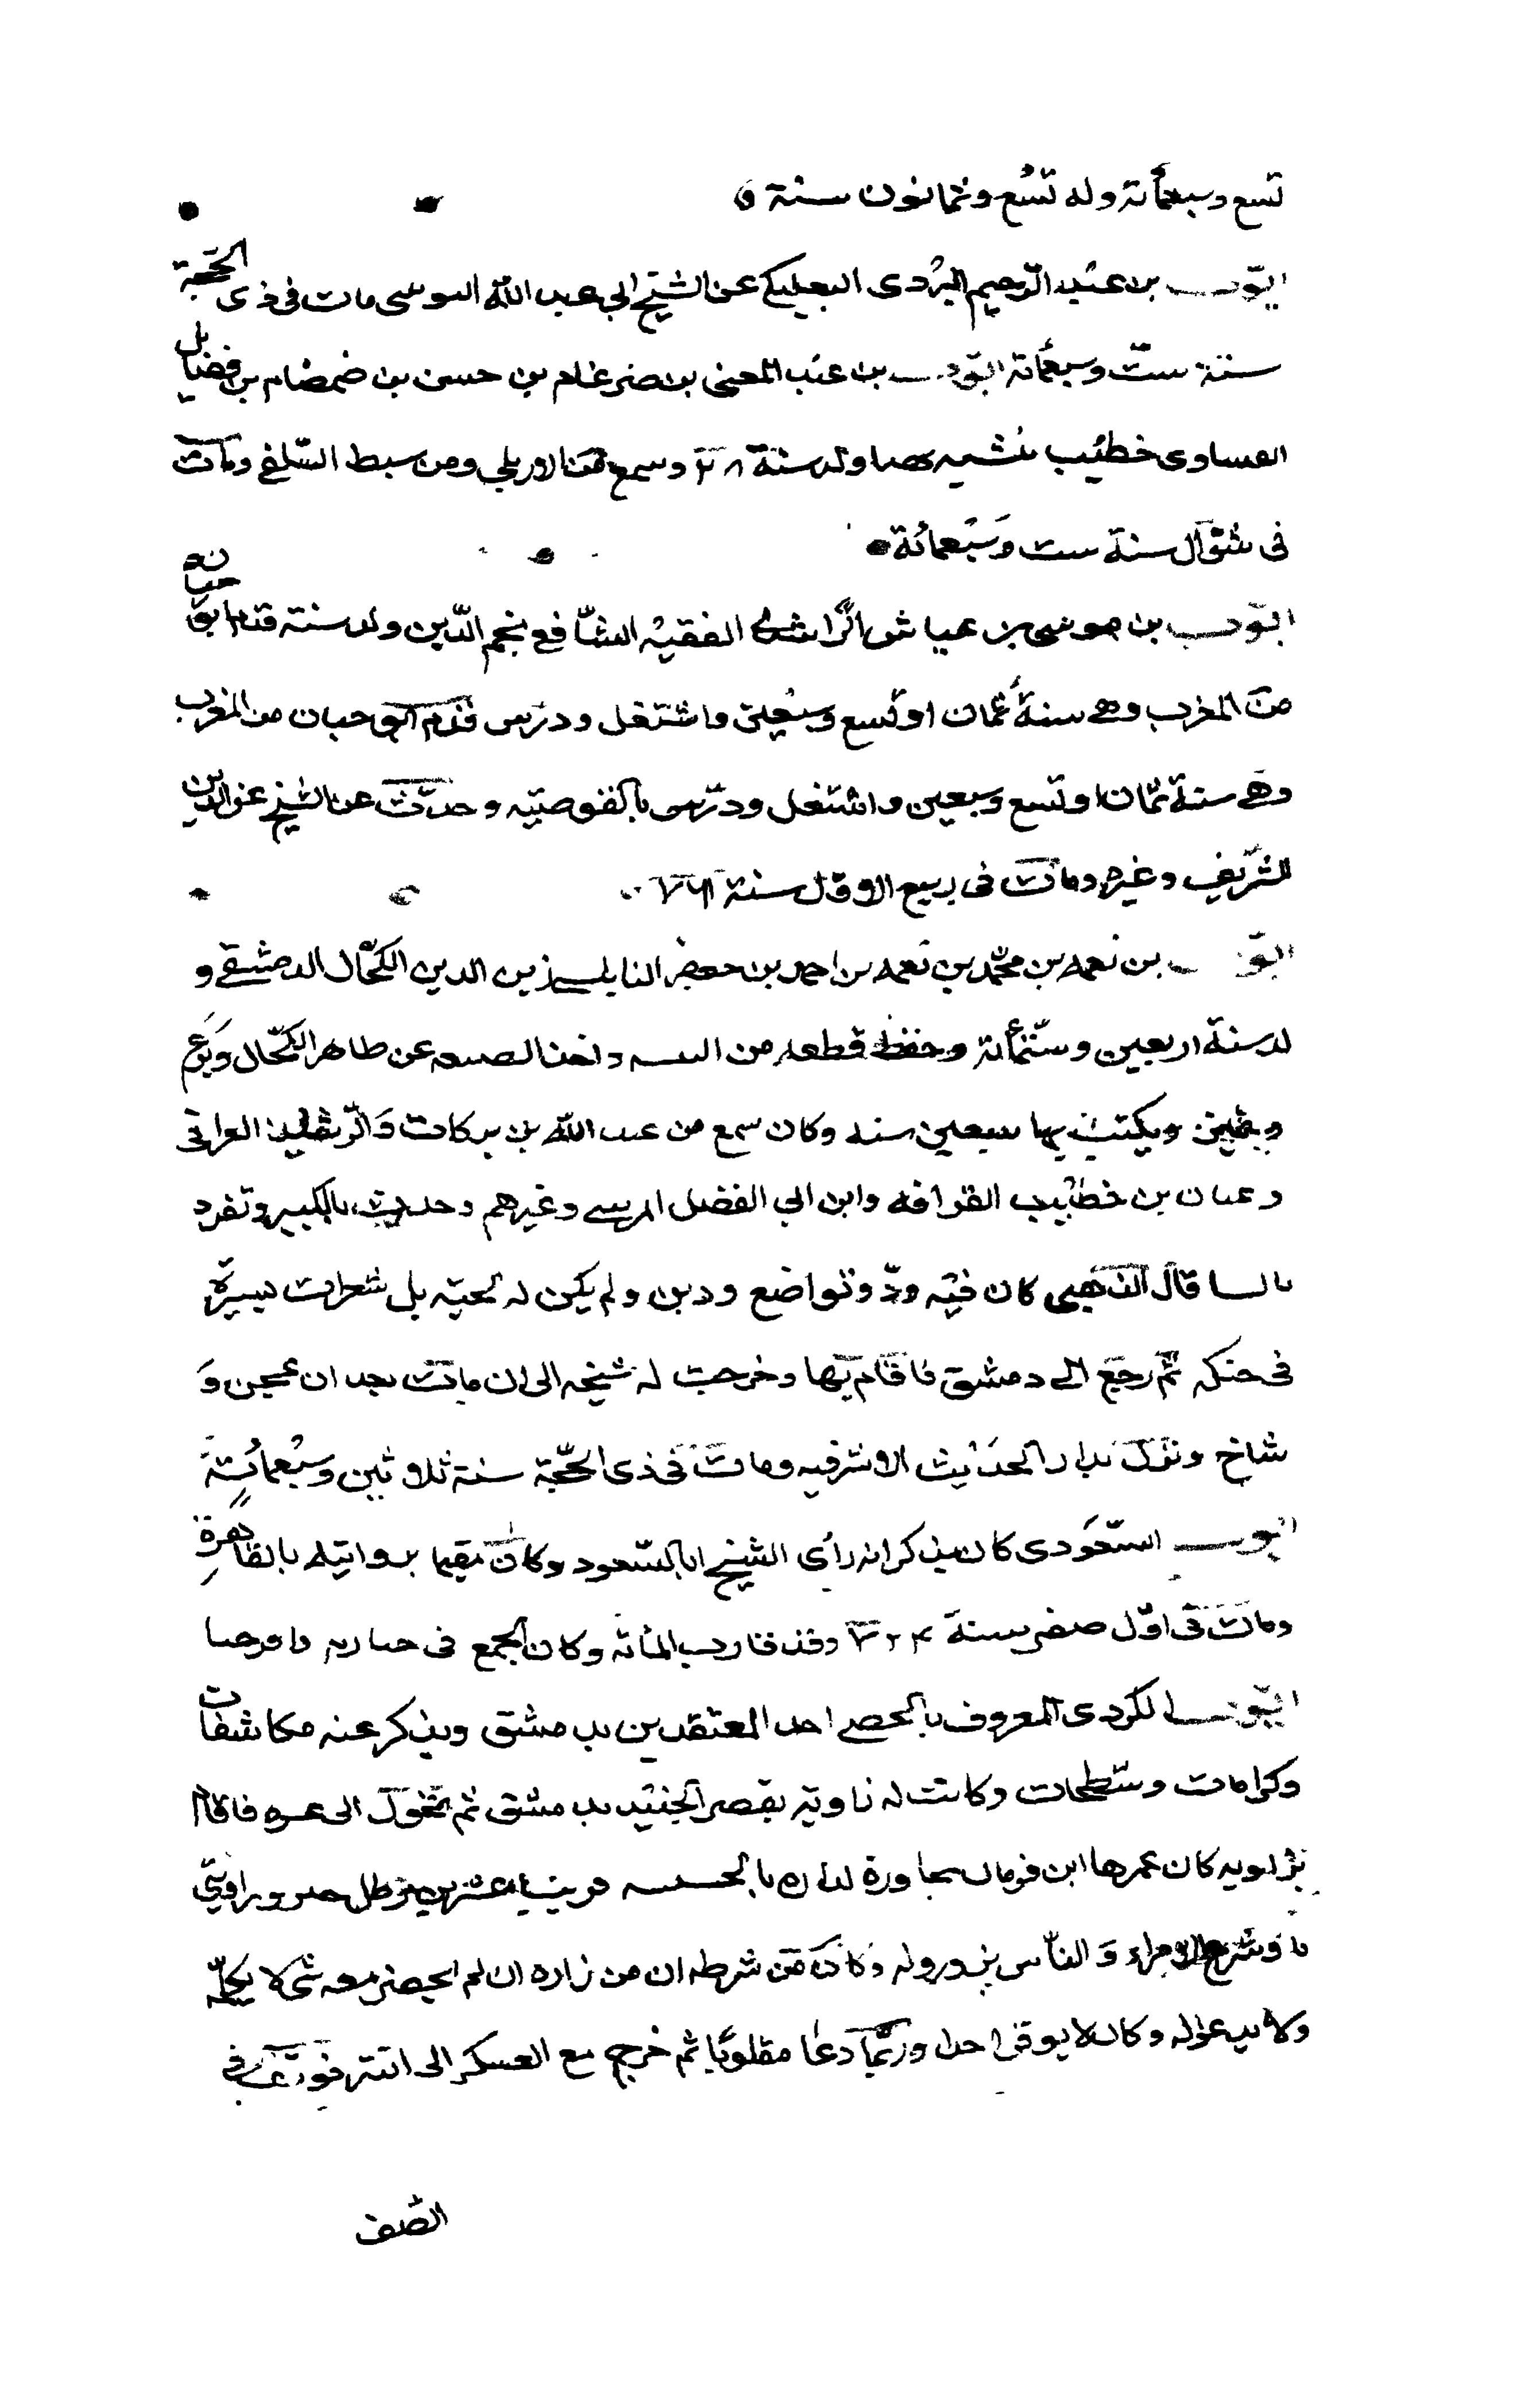 تسع وسبعمائة وله تسع وثمانون سنة
ايوب بن عبد الرحيم البردى البعلبكى عن الشيخ ابى عبد الله اليونينى مات فى ذى الحجة
سنة ست وسبعمائة ايوب بن عبد المعنى بن ضرغام بن حسن بن ضمضام بن فضايل
خطيب ولد سنة ٢٨ وسمع من الاربلى ومن سبط السلفى ومات
فى شوال سنة ست وسبعمائة
ايوب بن موسى بن عياش الراشدى الفقيه الشافعى نجم الدين ولد سنة قدم ابو حيان
من المغرب وهى سنة ثمان او تسع وسبعين واشتغل ودرس قدم ابو حيان من المغرب
وهى سنة ثمان او تسع وسبعين واشتغل ودرس بالقوصيه وحدث عن الشيخ عز الدين
الشريف وغيره ومات فى ربيع الاول سنة ٧٦١
ايوب بن نعمه بن محمد بن نعمه بن احمد بن جعفر النابلسى زين الدين الكحال الدمشقى و
لد سنة اربعين وستمائة وحفظ قطعه من التنبيه واخذ الصنعه عن طاهر الكحال وبرع
وتميز ويكتب بها سبعين سنه وكان سمع من عبد الله بن بركات والرشيد العراقى
وعثمان بن خطيب القرافه وابن ابى الفضل المرسى وغيرهم وحدث بالكثير وتفرد
قال الذهبى كان فيه ود وتواضع ودين ولم يكن له لحيه بل شعرات يسيرة
فى حنكه ثم رجع الى دمشق فاقام بها وخرجت له مشيخه الى ان مات بعد ان عجز و
شاخ ونزل بدار الحديث الاشرفيه ومات فى ذى الحجة سنة ثلاثين وسبعمائة
ايوب السعودى كان يذكر انه رأى الشيخ ابا السعود وكان مقيما بزوايته بالقاهرة
ومات فى اول صفر سنة ٧٢٤ وقد قارب المائه وكان الجمع فى جنازته وافرجدا
ايوب الكردى المعروف بالحصى احد المعتقدين بدمشق ويذكر عنه مكاشفات
وكرامات وشطحات وكانت له زاوية بقصر الجنيد بدمشق ثم تحول الى عزه فاقام
بزاويه كان عمرها ابن فرمان مجاورة لداره بالحسينيه قريبا من عشرين رطل
وشرع الامراء والناس يزورونه وكان من شرطه ان من زاره ان لم يحضر معه شى لا يكلمه
ولا يدعو له وكان لا يوقر احدا وربما دعا مقلوبا ثم خرج مع العسكر الى التتر فوقف فى
الصف